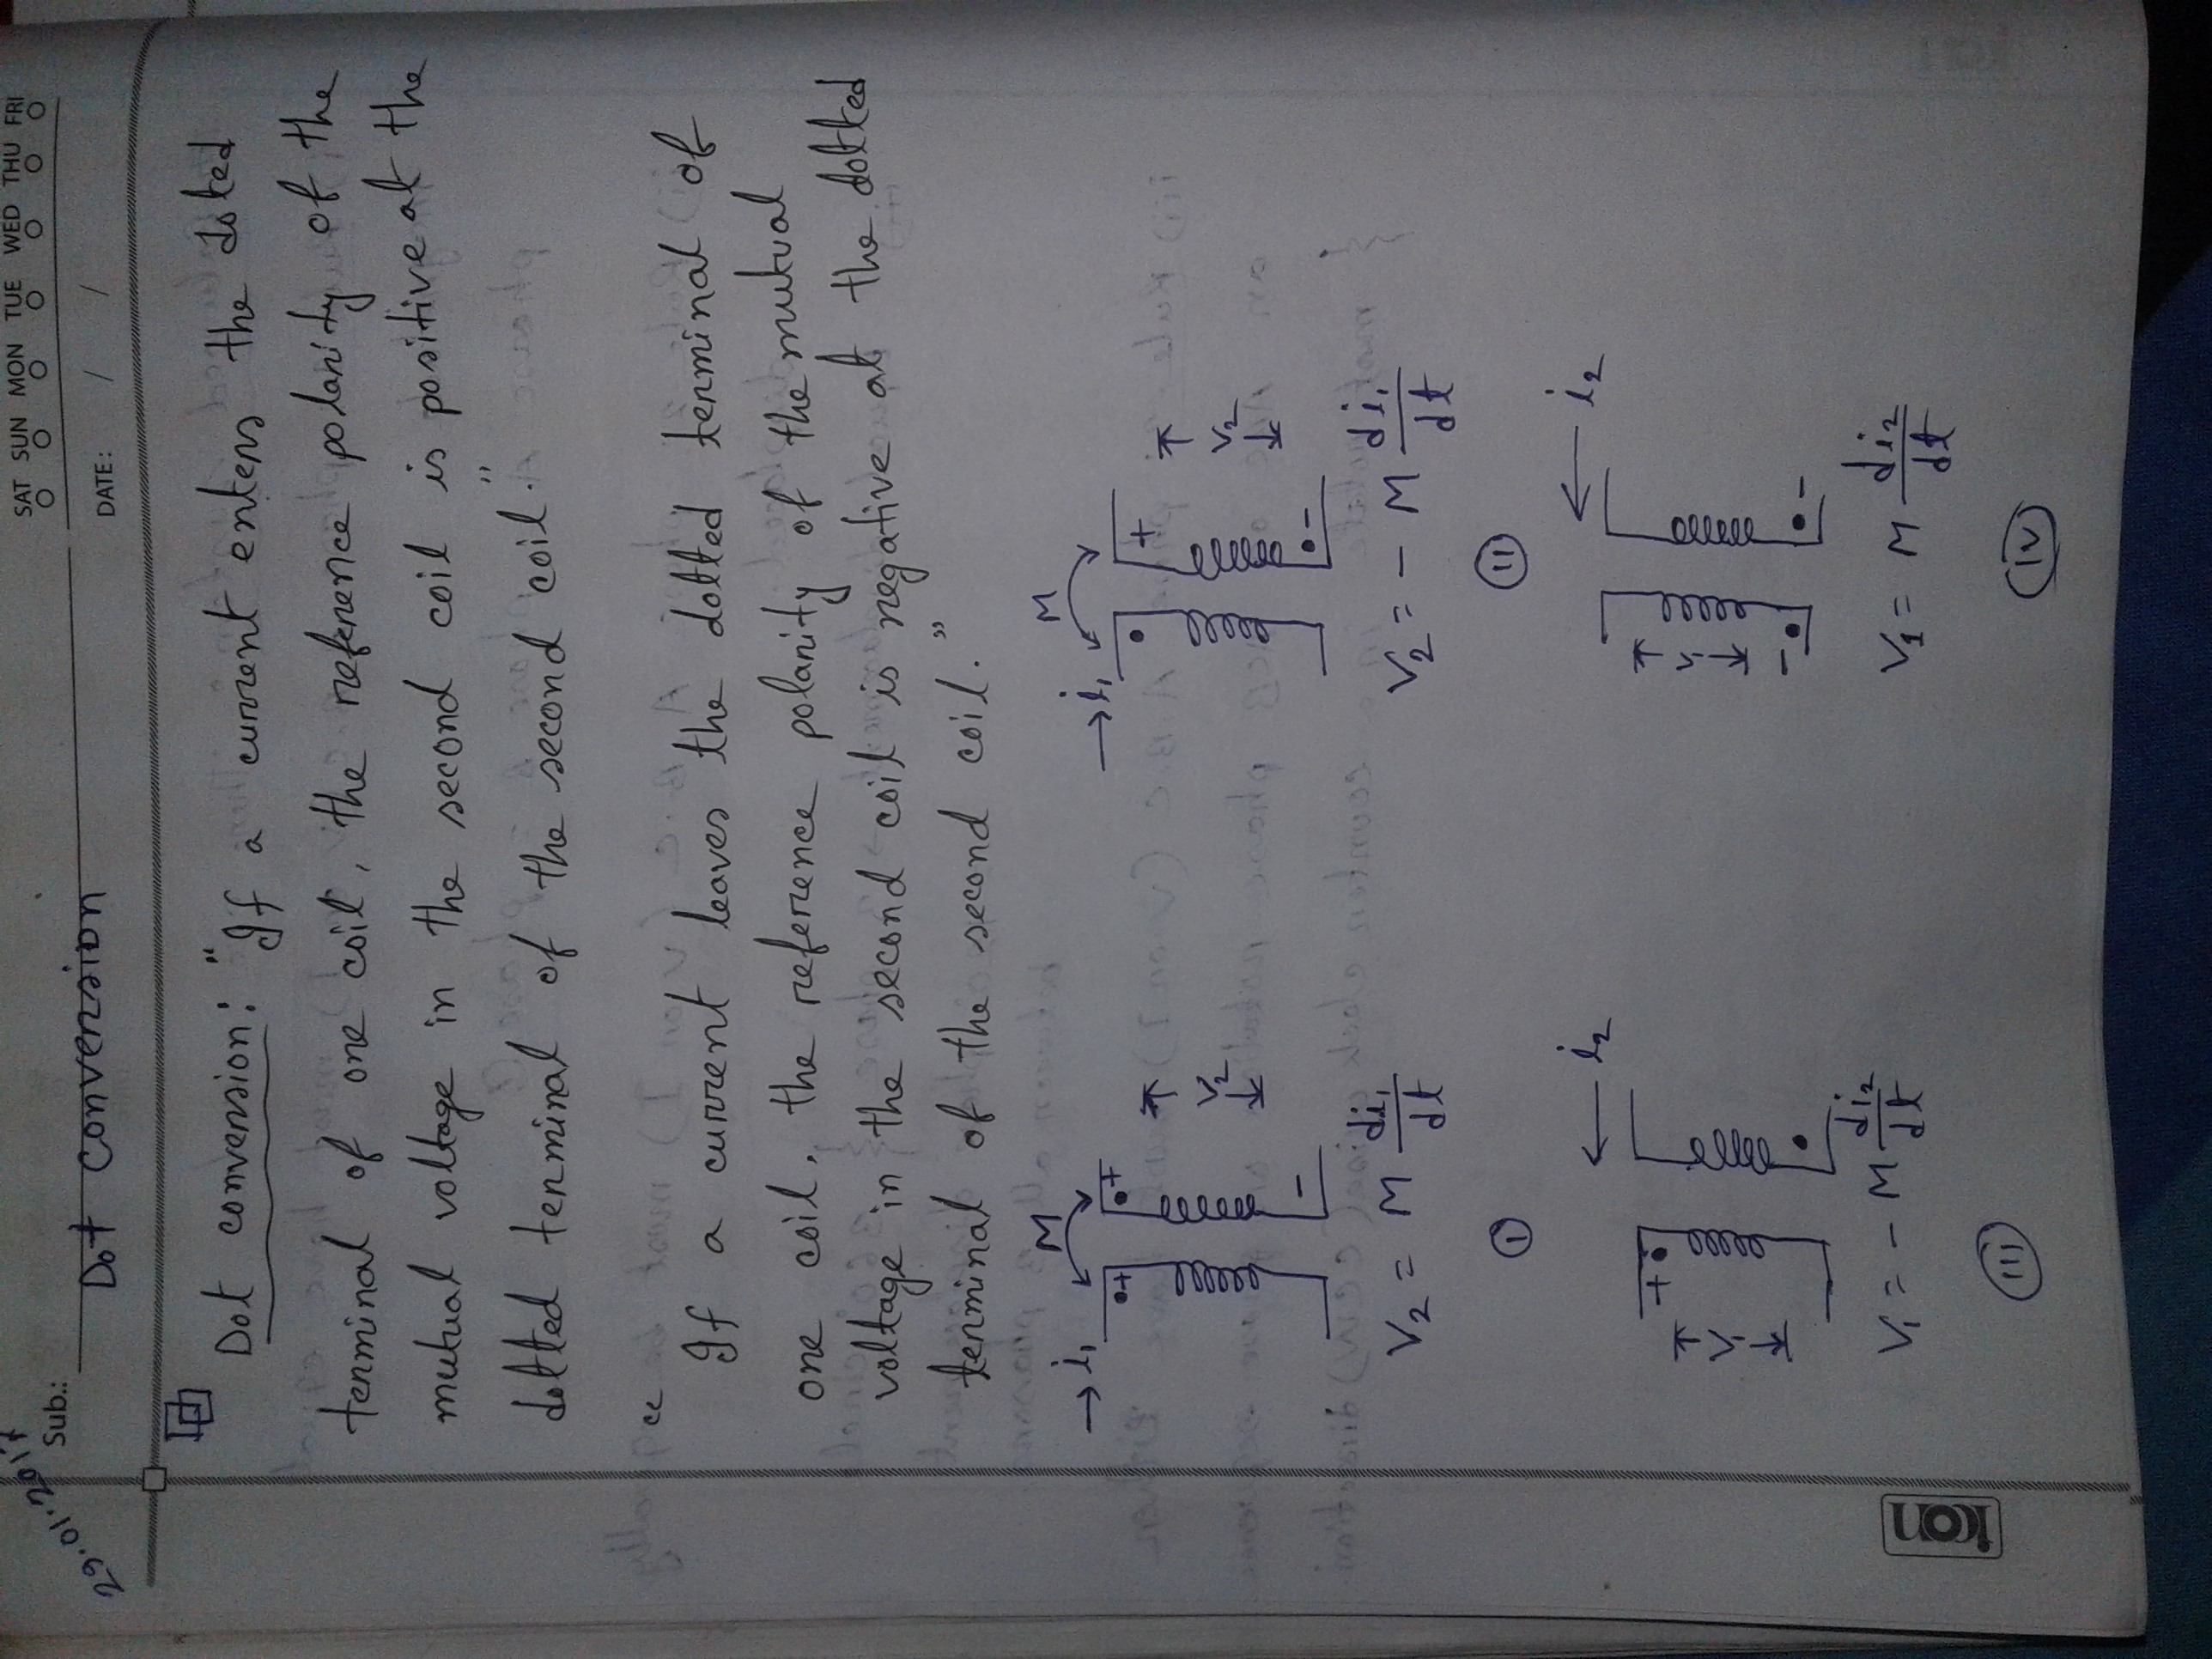 29.01.2017
Sub.:
SAT SUN MON TUE WED THU FRI
Dot conversion
DATE: / /
Dot conversion: "If a current enters the doted
terminal of one coil, the reference polarity of the
mutual voltage in the second coil is positive at the
dotted terminal of the second coil."
"
If a current leaves the dotted terminal of
one coil, the reference polarity of the mutual
voltage in the second coil is negative at the dotted
terminal of the second coil."
→ i₁ M
+ +
V₂
-
V₂ = M di₁/dt
I
→ i₁ M
+
V₂
-
V₂ = - M di₁/dt
II
← i₂
+
V₁
V₁ = - M di₂/dt
III
← i₂
V₁
- -
V₁ = M di₂/dt
IV
ion